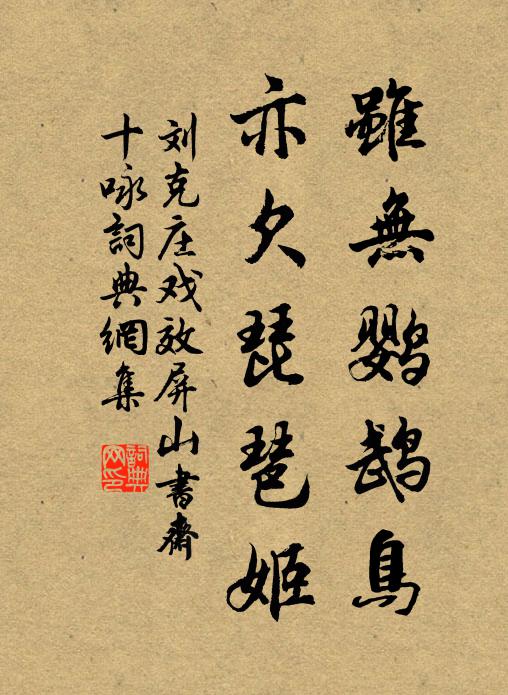 雖無鹦鹉鳥
亦欠琵琶姬
刘克庄戏效屏山書齋
十咏詞典網集
詞典
网印